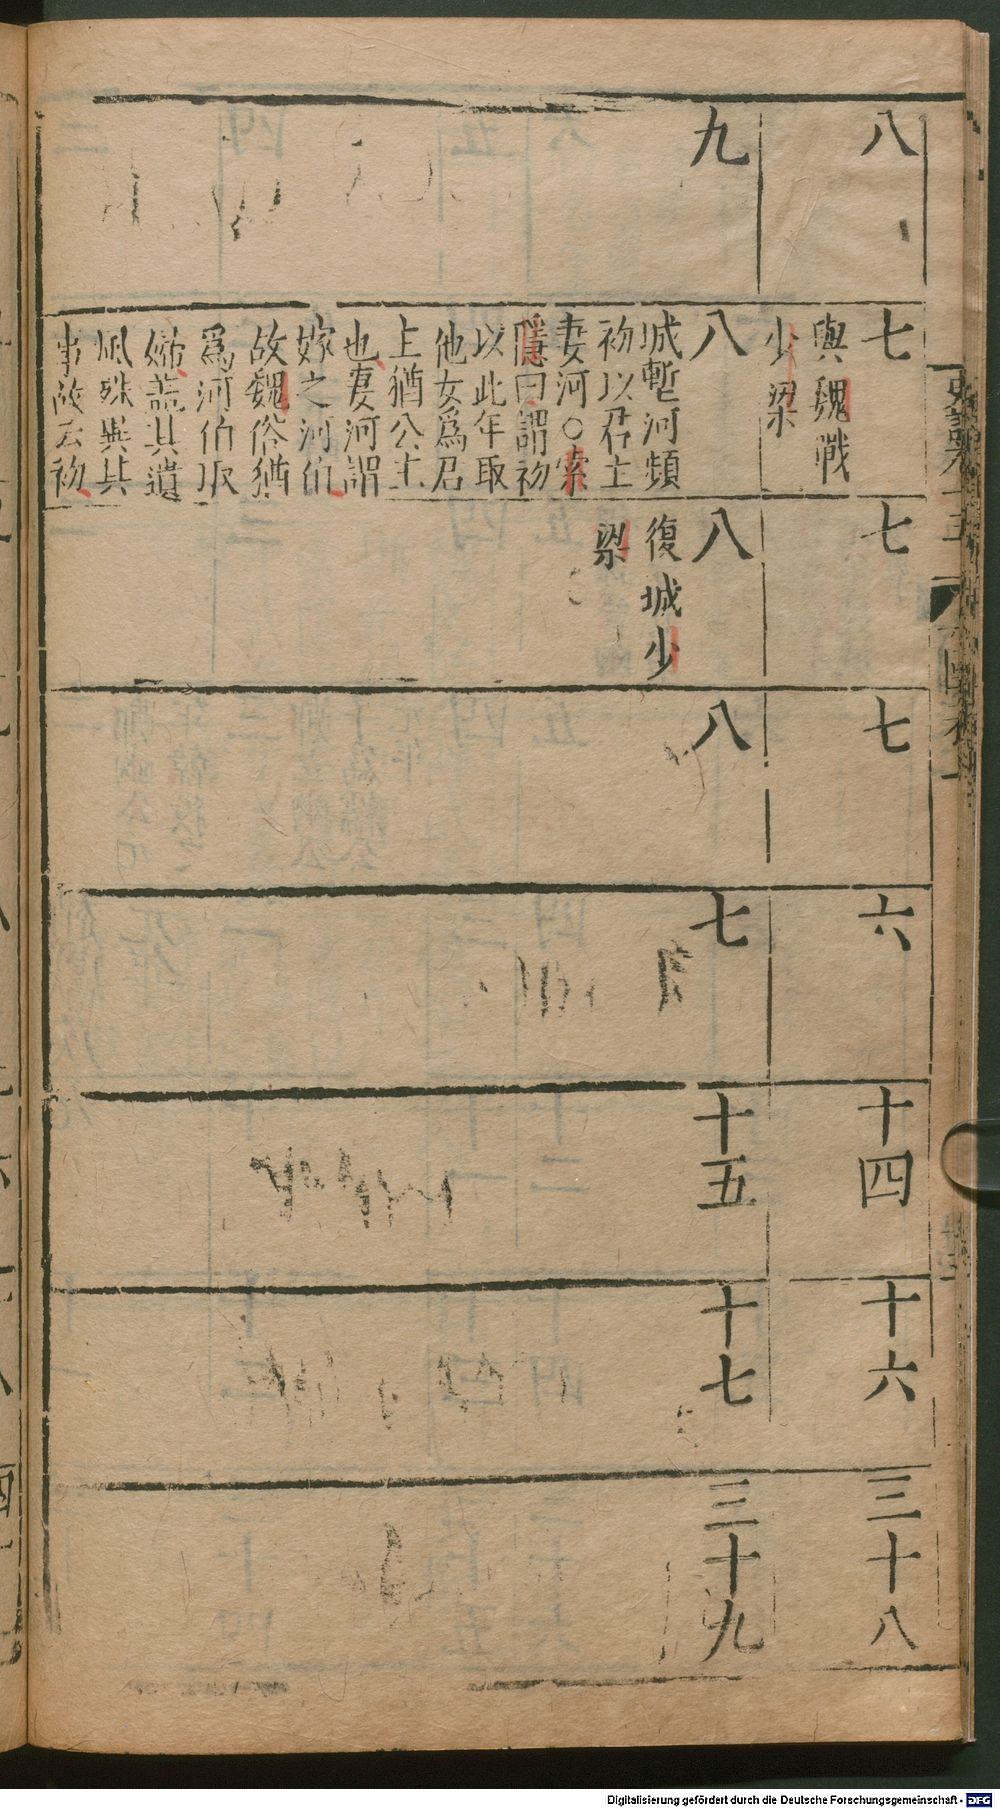 八
七
與魏戰
少梁
七
七
六
十四
十六
三十八
九
八
城塹河頻
初以君主
妻河○索
隱曰謂初
以此年取
他女爲君
上猶公主
也妻河謂
嫁之河伯
故魏俗猶
爲河伯取
婦蓋其遺
風殊異其
事故云初
八
復城少
梁
八
七
十五
十七
三十九
Digitalisierung gefördert durch die Deutsche Forschungsgemeinschaft - DFG